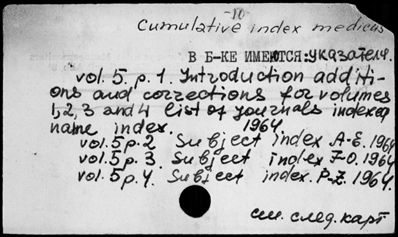 -10-
Cumulative index medicus
В Б-КЕ ИМЕЮТСЯ: указатели.
vol. 5. p. 1. Introduction additi-
ons and corrections for volumes
1, 2, 3 and 4 list of journals indexed
name index. 1964
vol. 5 p. 2 Subject index A-E. 1964
vol. 5 p. 3 Subject index F-O. 1964
vol. 5 p. 4. Subject index. P-Z. 1964.
см. след. карт